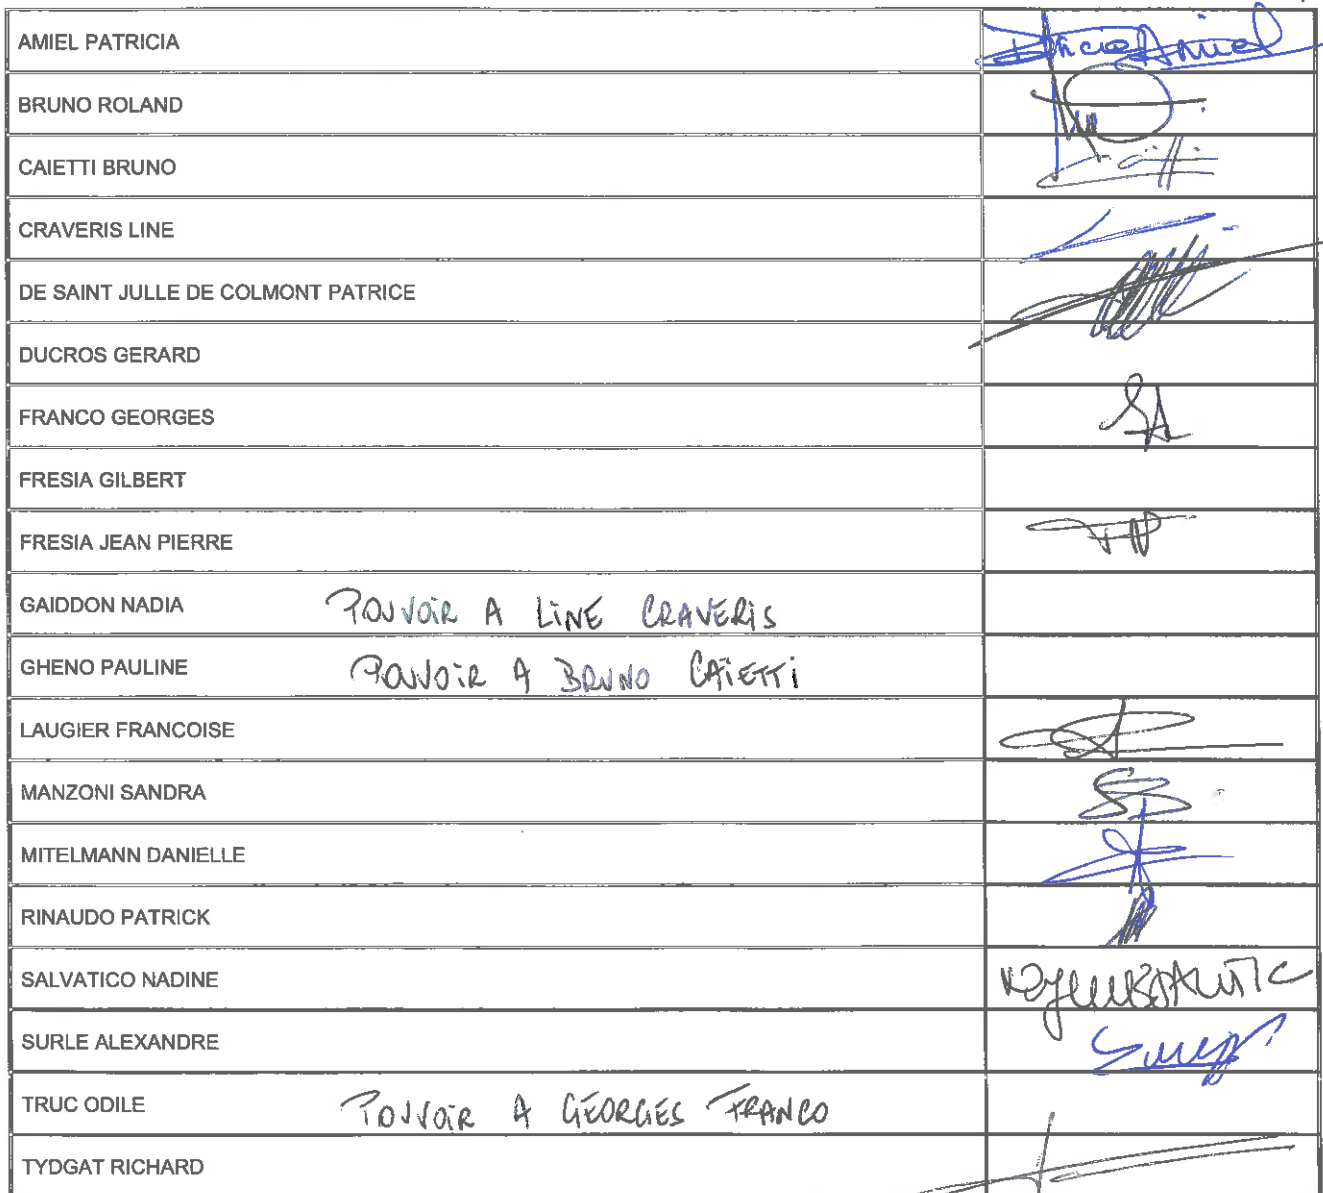 AMIEL PATRICIA
BRUNO ROLAND
CAIETTI BRUNO
CRAVERIS LINE
DE SAINT JULLE DE COLMONT PATRICE
DUCROS GERARD
FRANCO GEORGES
FRESIA GILBERT
FRESIA JEAN PIERRE
GAIDDON NADIA POUVOIR A LINE CRAVERIS
GHENO PAULINE POUVOIR A BRUNO CAÏETTI
LAUGIER FRANCOISE
MANZONI SANDRA
MITELMANN DANIELLE
RINAUDO PATRICK
SALVATICO NADINE
SURLE ALEXANDRE
TRUC ODILE POUVOIR A GEORGES FRANCO
TYDGAT RICHARD